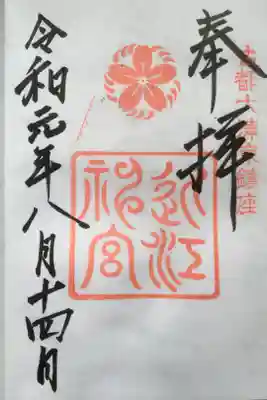 古都大津京鎮座
奉拝
近江神宮
令和元年八月十四日